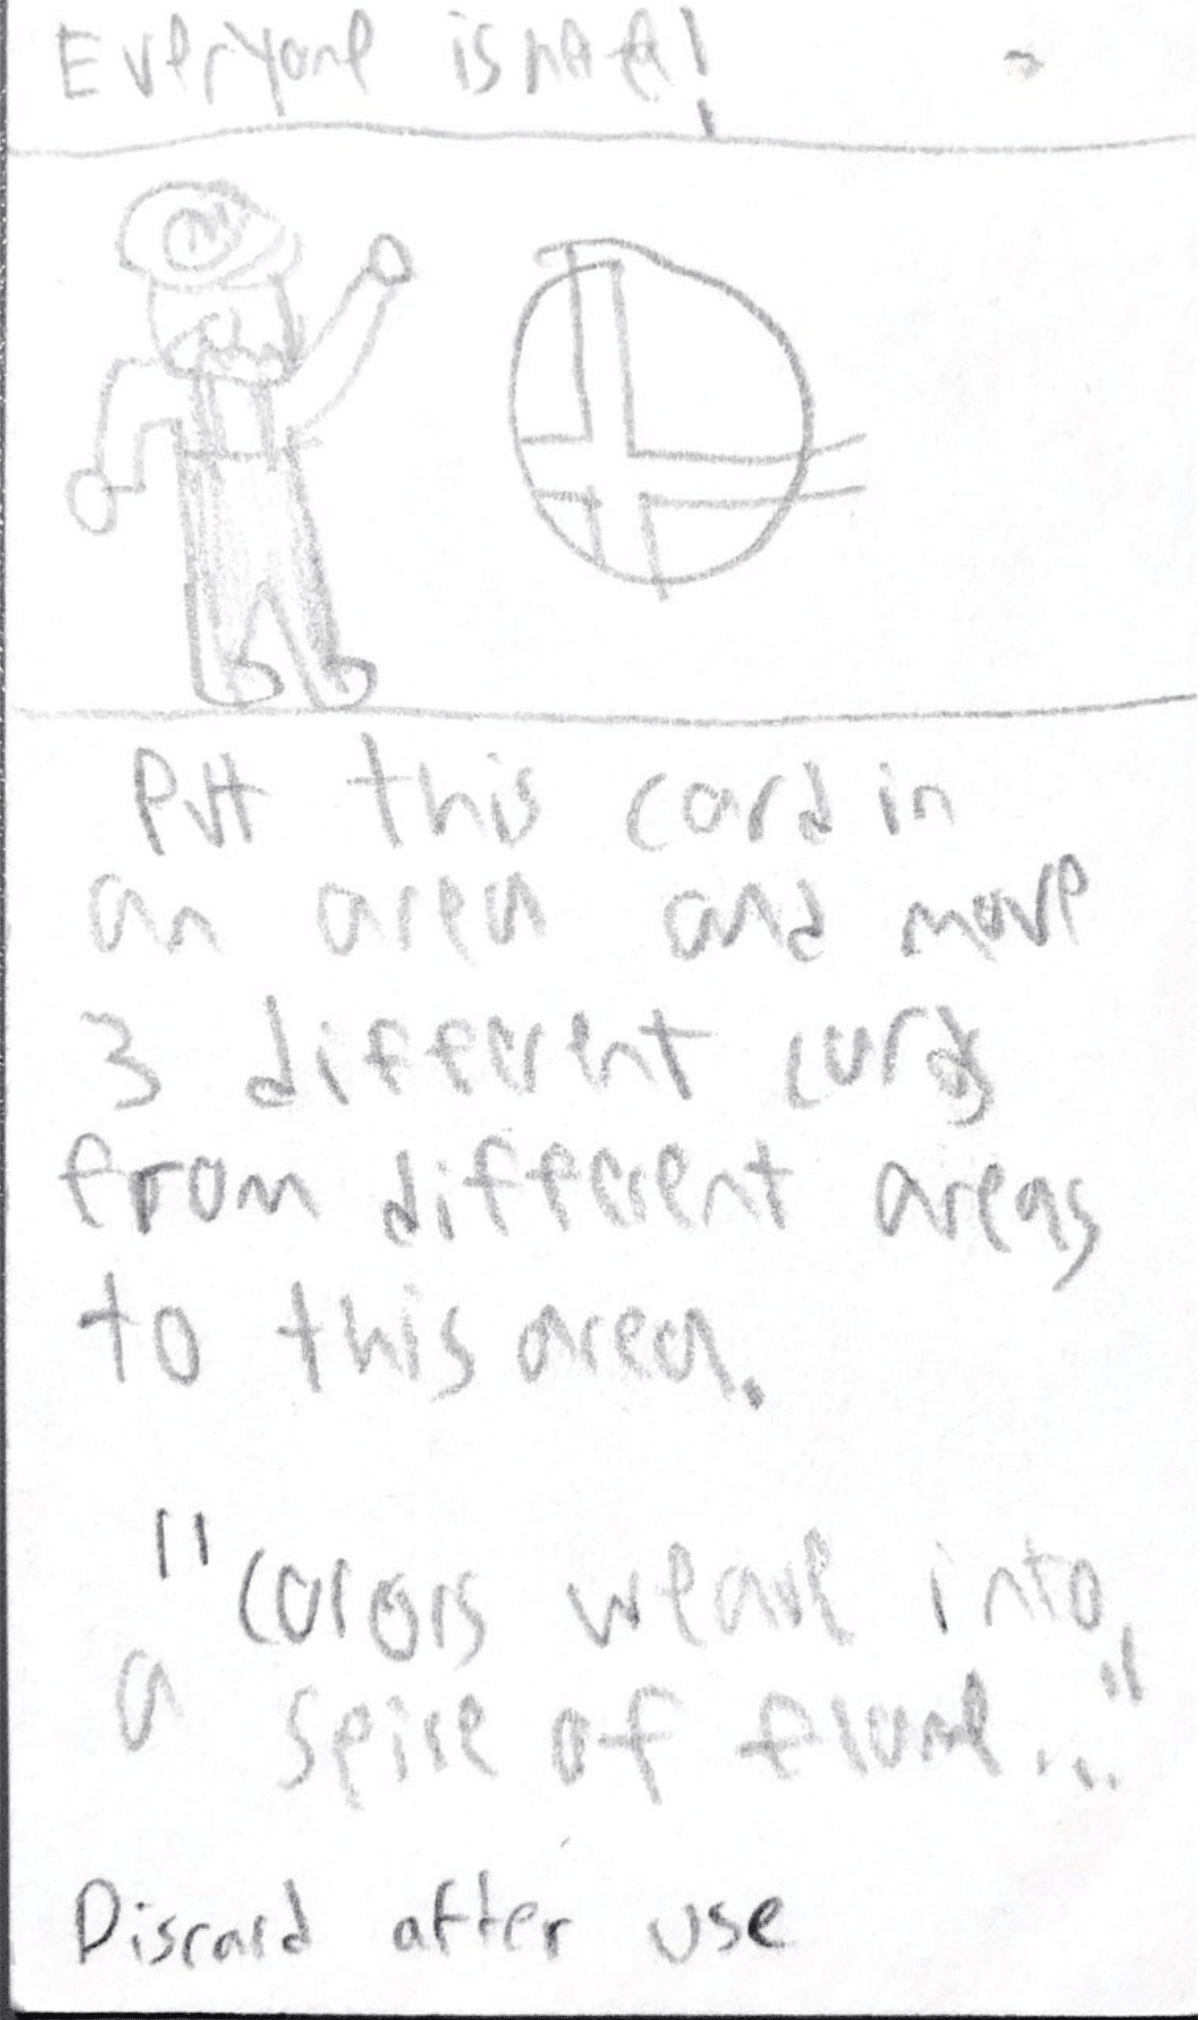 Everyone is here!
M
Put this card in
an area and move
3 different cards
from different areas
to this area.
"Colors weave into
a spire of flame..."
Discard after use